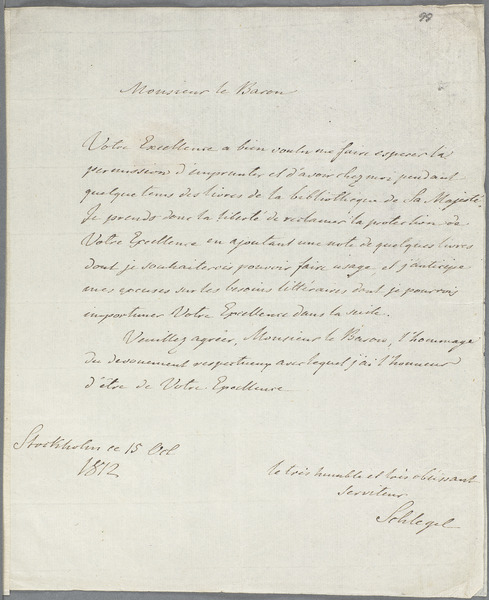 99
Monsieur le Baron
Votre Excellence a bien voulu me faire esperer la
permission d'emprunter et d'avoir chez moi pendant
quelque tems des livres de la bibliothèque de Sa Majesté.
Je prends donc la liberté de réclamer la protection de
Votre Excellence en ajoutant une note de quelques livres
dont je souhaiterois pouvoir faire usage, et j'anticipe
mes excuses sur les besoins littéraires dont je pourrois
importuner Votre Excellence dans la suite.
Veuillez agréer, Monsieur le Baron, l'hommage
du devouement respectueux avec lequel j'ai l'honneur
d'être de Votre Excellence
Stockholm ce 15 Oct
1812
le très humble et très obéissant
serviteur
Schlegel